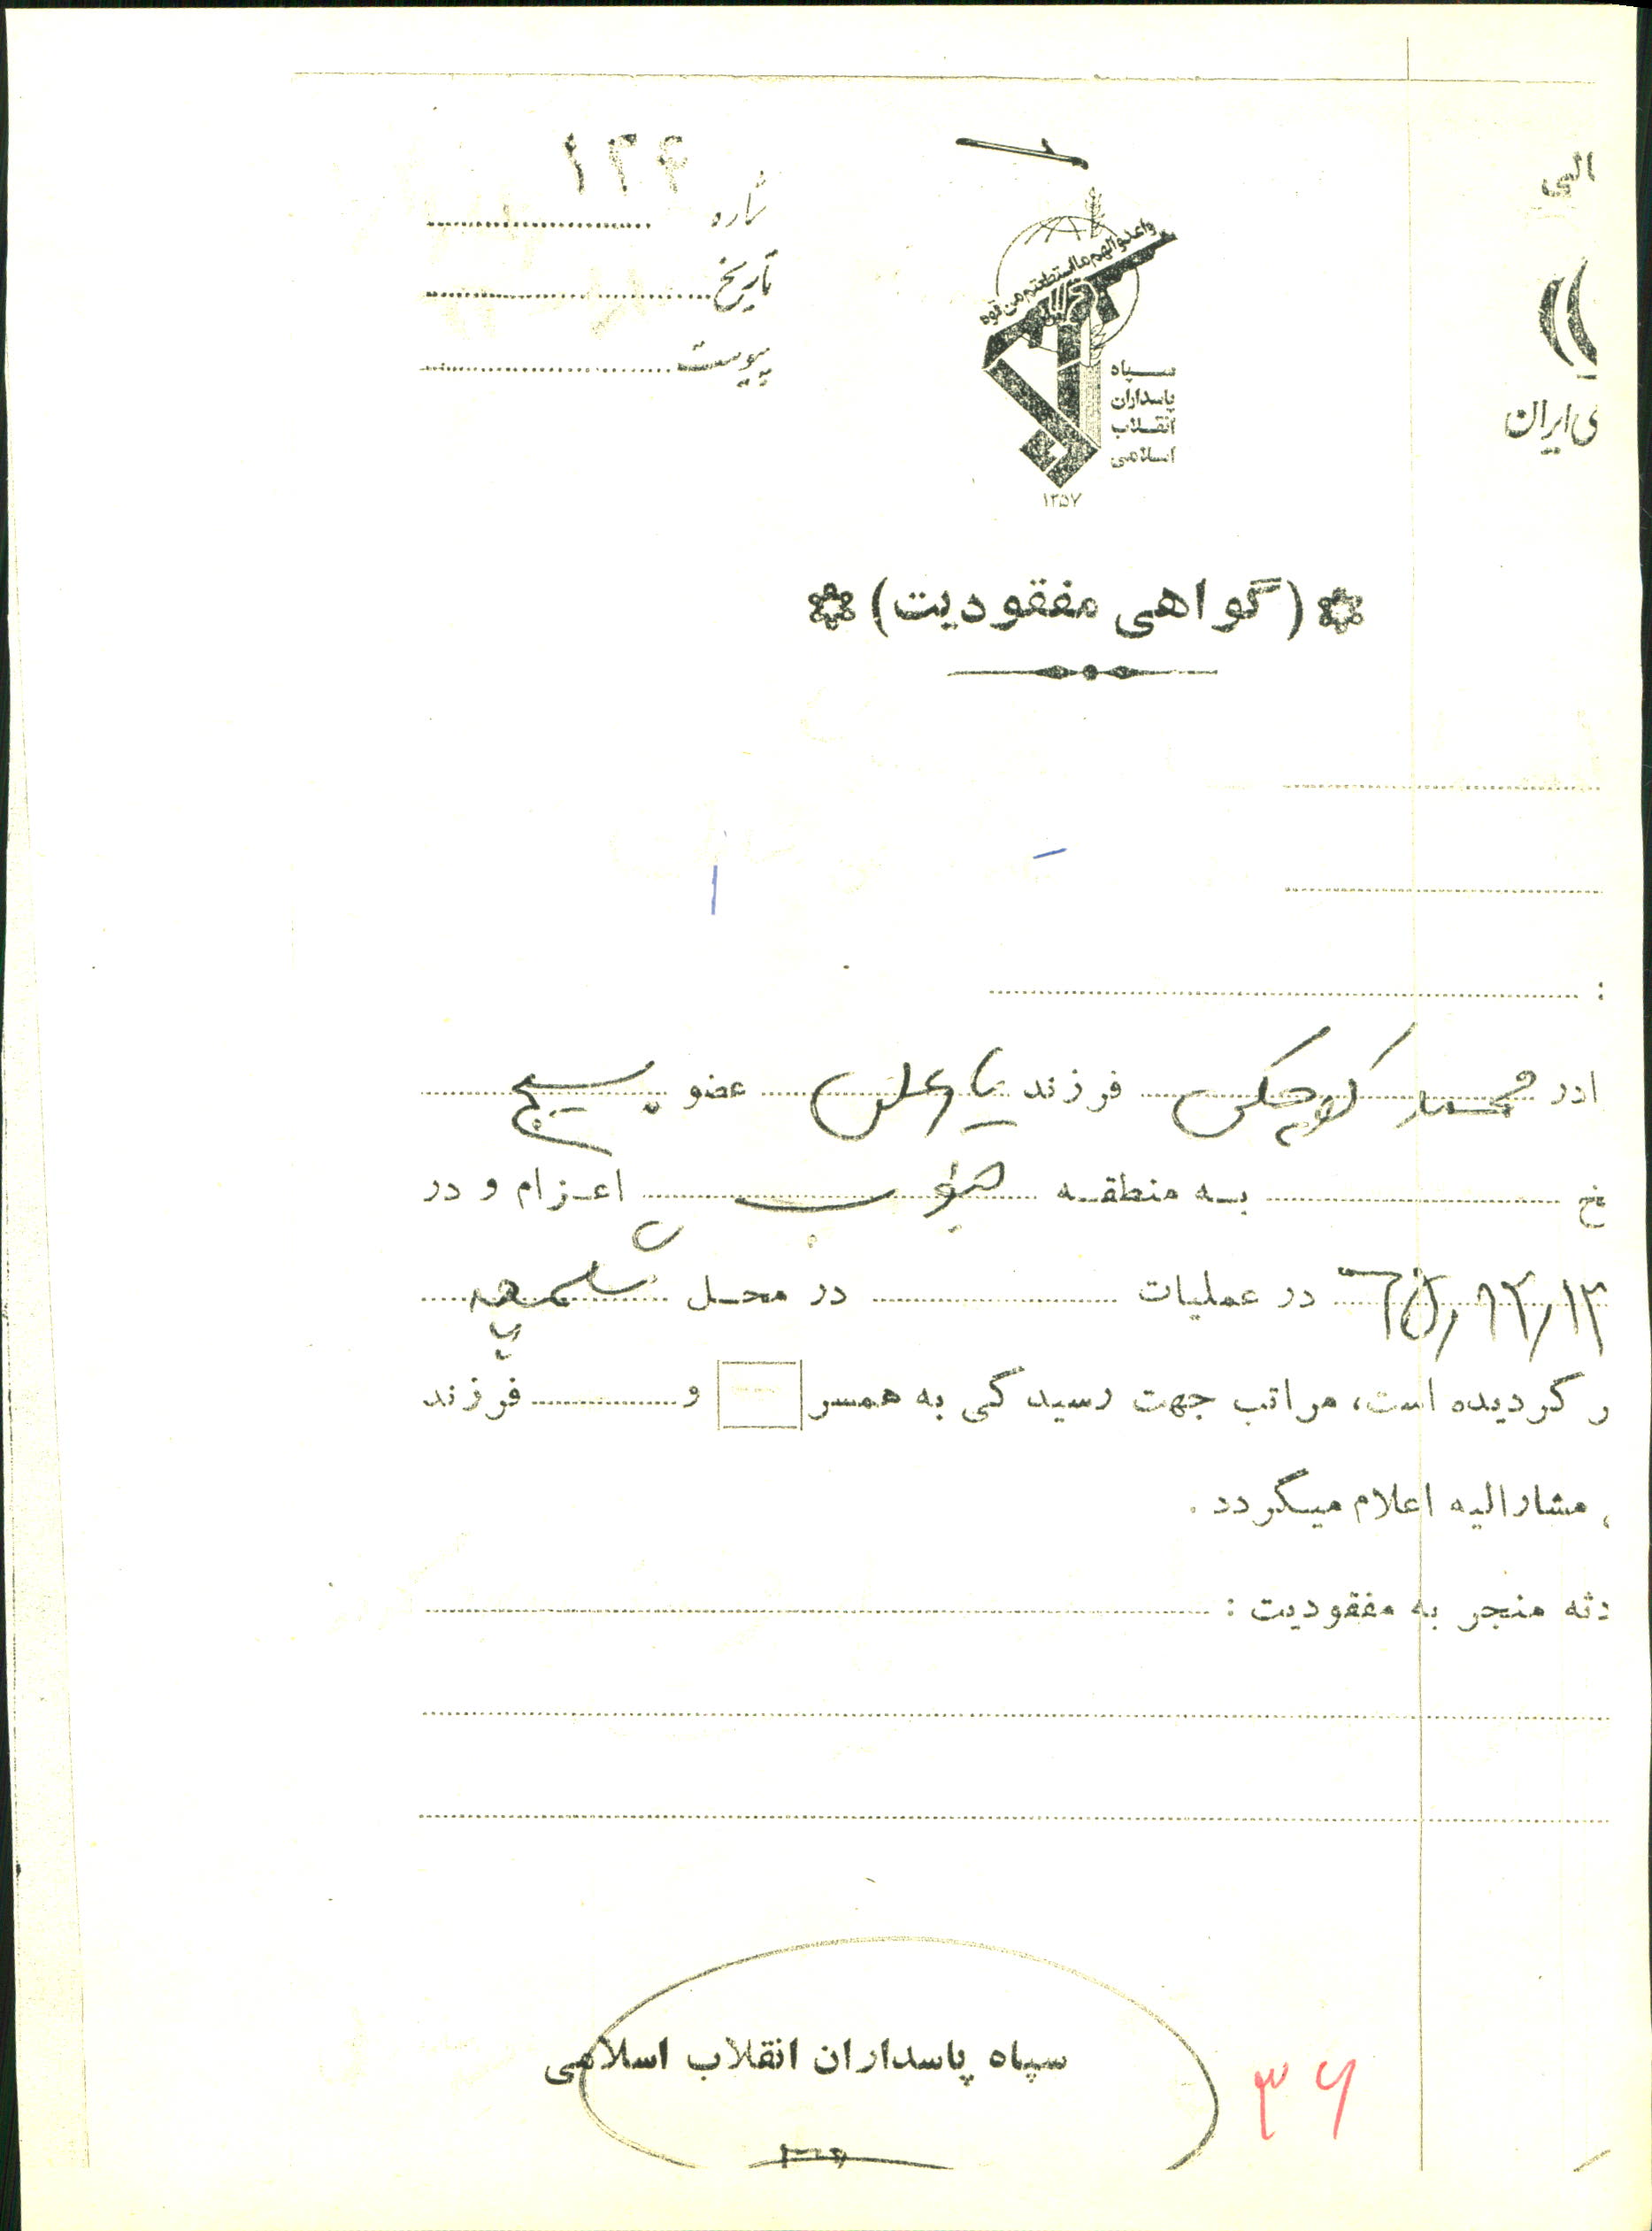 ۱۲۶
شماره
الی
تاریخ
پیوست
واعدوالهم مااستطعتم من قوه
سپاه
پاسداران
انقلاب
اسلامی
۱۳۵۷
ی ایران
(گواهی مفقودیت)
:
ادر محمد کوچکی فرزند یارعلی عضو بسیج
خ به منطقه جنوب اعزام و در
در عملیات در محل شلمچه
ر گردیده است، مراتب جهت رسیدگی به همسر و فرزند
، مشارالیه اعلام میگردد .
دثه منجر به مفقودیت :
سپاه پاسداران انقلاب اسلامی
۳۶